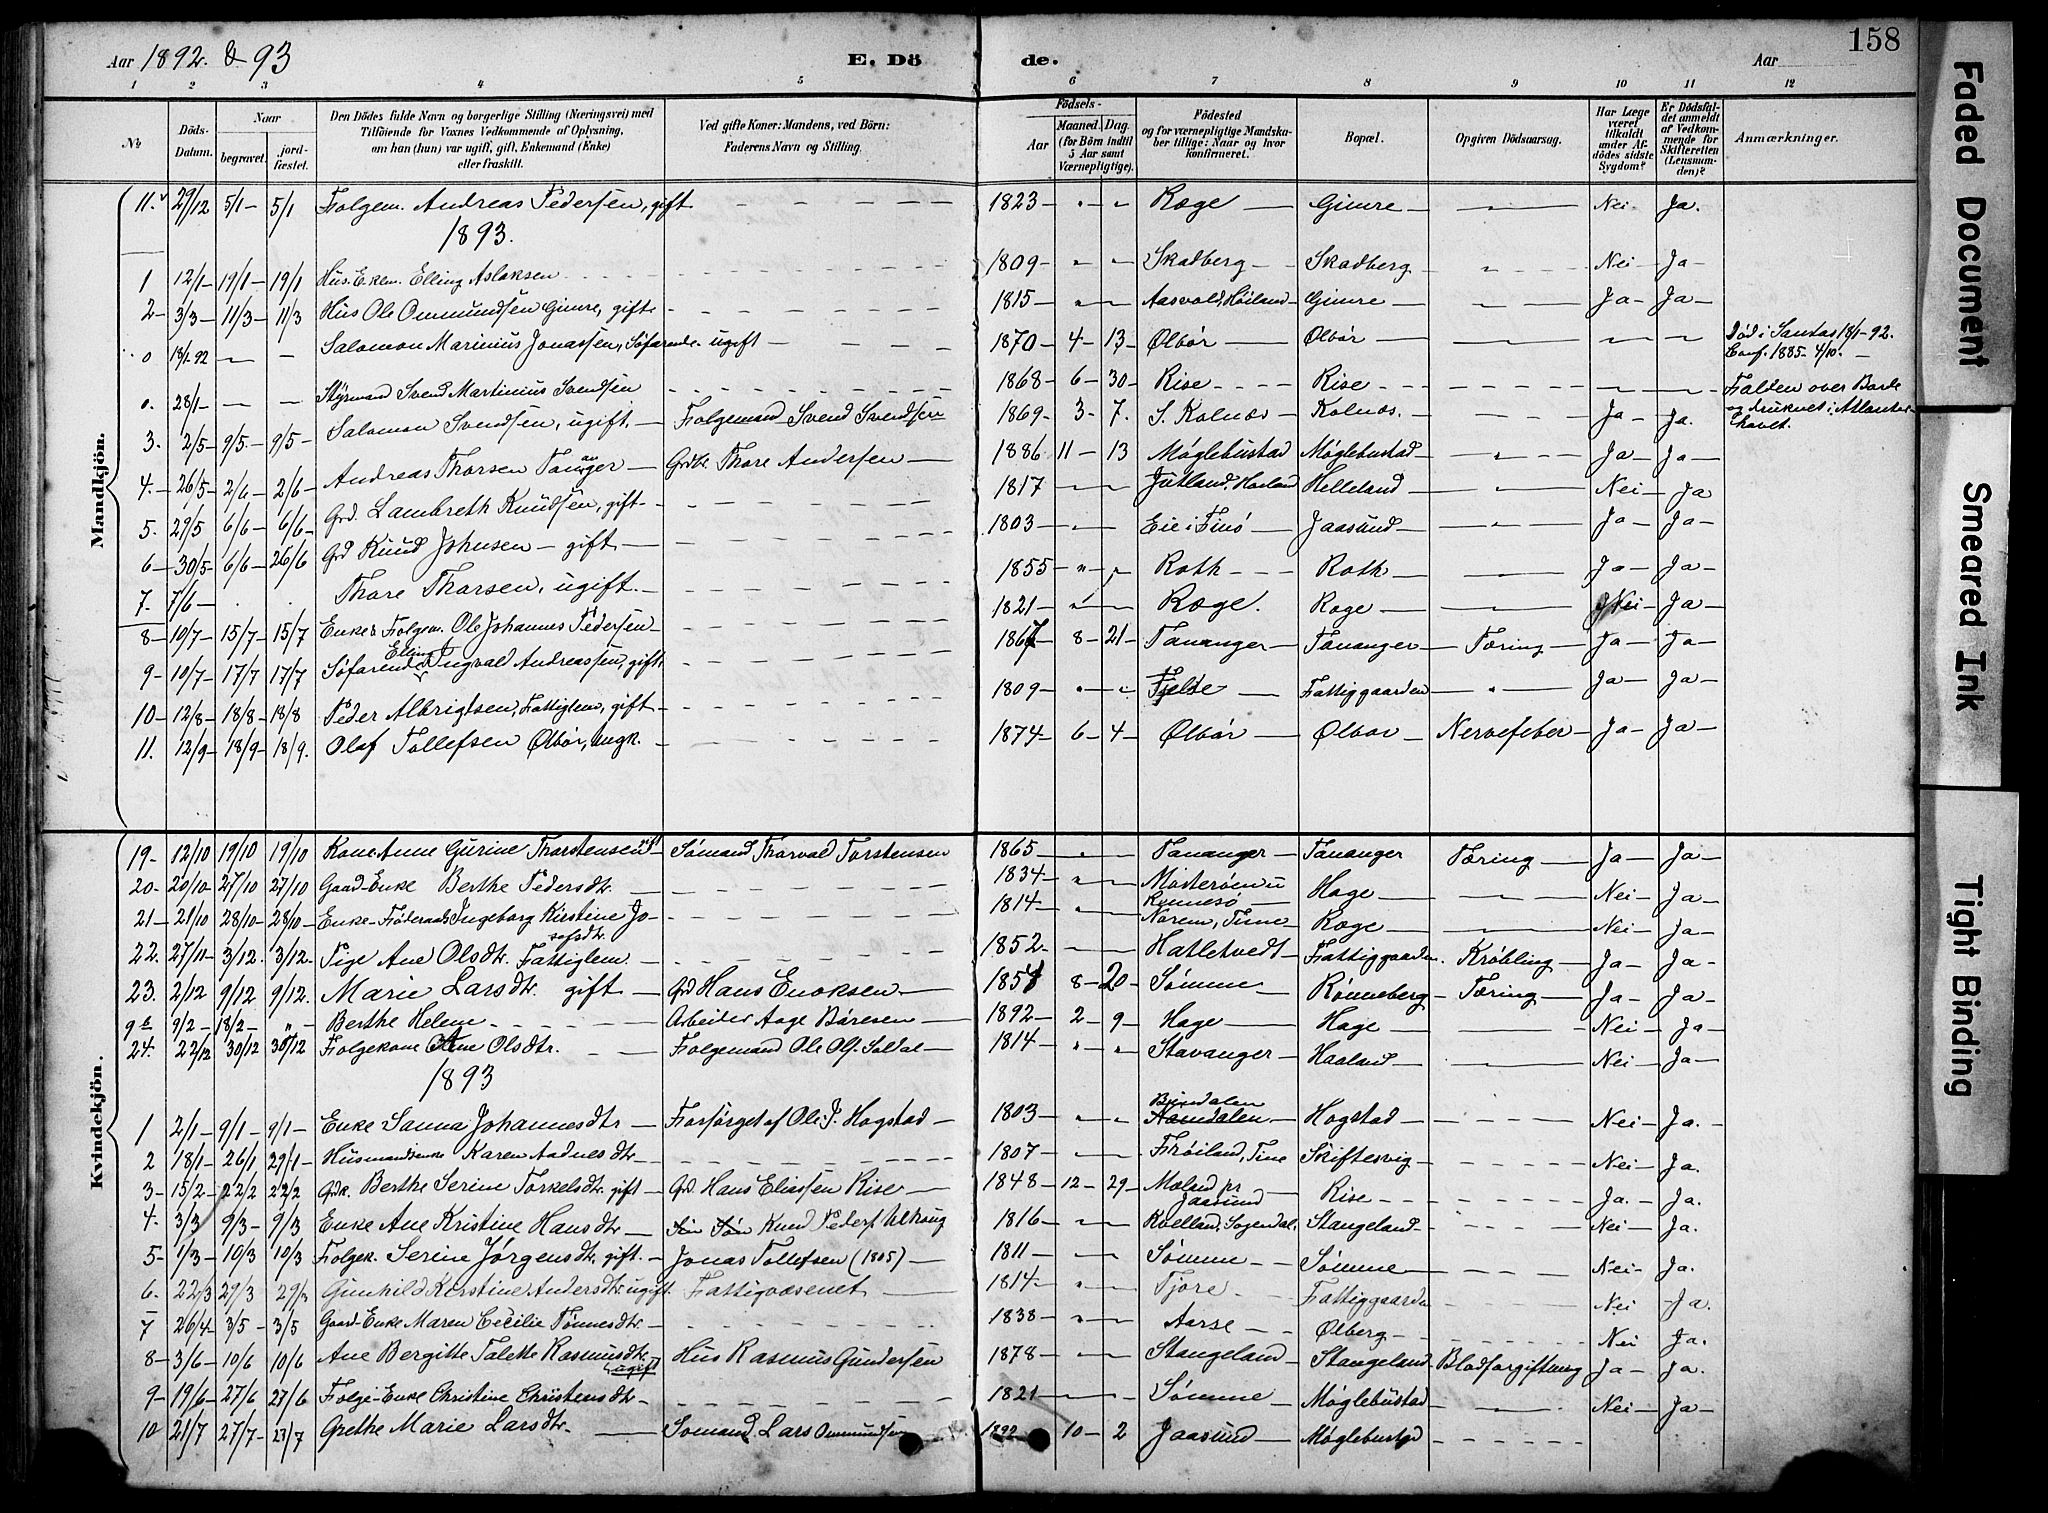 Aar 1892. & 93
E. Dö de.
Aar
158
1 2 3 4 5 6 7 8 9 10 11 12
No
Döds-Datum.
Naar begravet. jordfæstet.
Den Dödes fulde Navn og borgerlige Stilling (Næringsvei) med Tilföiende for Voxnes Vedkommende af Oplysning, om han (hun) var ugift, gift, Enkemand (Enke) eller fraskilt.
Ved gifte Koner: Mandens, ved Börn: Faderens Navn og Stilling.
Födsels-
Aar
Maaned. Dag. (for Börn indtil 5 Aar samt Værnepligtige).
Födested og for værnepligtige Mandskaber tillige: Naar og hvor konfirmeret.
Bopæl.
Opgiven Dödsaarsag.
Har Læge været tilkaldt under Afdödes sidste Sygdom?
Er Dödsfaldet anmeldt af Vedkommende for Skifteretten (Lensmanden)?
Anmærkninger.
Mandkjön.
11. 29/12 5/1 - 5/1 Folgem. Andreas Pedersen, gift 1823 - " " Ræge - Gimre - Nei - Ja.
1893.
1 12/1 - 19/1 - 19/1 Hus. Enkem. Elling Aslaksen 1809 - " Skadberg - Skadberg " Nei - Ja -
2 - 3/3 - 11/3 - 11/3 Hus Ole Ommundsen Gimre, gift 1815 - " Aasvold, Höiland - Gimre - Ja - Ja -
0 18/1 92 - - Salomon Marinius Jonassen, Söfarende ugift - 1870 - 4 - 13 Ølbør - Ølbør - Död i Santos 18/1 - 92. Conf. 1885 - 4/10. -
0. 28/1 - - - Styrmand Svend Martinius Svendsen 1868 - 6 - 30 - Rise - Rise - Falden over Bord og druknet i Atlanterhavet.
3. 2/5 - 9/5 - 9/5 - Salomon Svendsen, ugift. - Folgemand Svend Svendsen 1869 - 3 - 7. S. Kolnæs - Kolnæs. - Ja - Ja.
4. - 26/5 - 2/6 - 2/6 - Andreas Thorsen Tananger - Grdbr. Thore Andersen - 1886 11 - 13 Møglebustad Møglebustad - Ja - Ja -
5. 29/5 6/6 - 6/6 - Grd. Lambreth Knudsen, gift - 1817 - Jutland, Haaland Helleland - Nei - Ja
6 - 30/5 - 6/6 - 26/6 Grd Knud Johnsen - gift - 1803 - Eie i Finö - Jaasund - Ja - Ja -
7. 7/6 - Thore Thorsen, ugift. - 1855 - " Roth - Roth - Ja - Ja -
8 - 10/7 - 15/7 - 15/7 Enke & Folgem. Ole Johannes Pedersen - 1821 - Ræge. Ræge - Nei - Ja -
9 - 10/7 - 17/7 - 17/7 Söfarende Elling Ingvald Andreassen, gift. 1867 - 8 - 21 - Tananger - Tananger - Tæring - Ja - Ja -
10 - 12/8 - 18/8 - 18/8 Peder Albrigtsen, Fattiglem, gift - 1809 - " " Fjelde - Fattiggaarden - " - Ja - Ja -
11. 12/9 - 18/9 - 18/9. Olaf Tollefsen Ølbør, ungk. - 1874 - 6 - 4 - Ølbør - Ølbør - Nervefeber - Ja - Ja -
Kvindekjön.
19 - 12/10 19/10 19/10 Kone Anne Gurine Thorstensen gift - Sömand Thorval Torstensen 1865 - Tananger - Tananger Tæring - Ja - Ja -
20 - 20/10 - 27/10 27/10 Gaard-Enke Berthe Pedersdtr. 1834 - " Mosterøen u Rennesö - Hage - Nei - Ja -
21 - 21/10 28/10 - 28/10 - Enke - Föderaads Ingeborg Kirstine Josefsdtr 1814 - " Norem, Time - Ræge - Nei - Ja -
22. 27/11 - 3/12. 3/12. Pige Ane Olsdtr. Fattiglem - 1852 - Hatletvedt - Fattiggaarden Krøbling - Ja - Ja -
23. 2/12 9/12 9/12. Marie Larsdtr. gift - Grd Hans Enoksen - 1854 8 - 20 - Sømme - Rønneberg - Tæring - Ja - Ja -
9 b 9/2 - 18/2 - " - Berthe Helene - Arbeider Aage Børesen - 1892 - 2 - 9 - Hage - Hage - Nei - Ja -
24. 22/12 30/12 30/12 Folgekone Ane Olsdtr. - Folgemand Ole Ols. Soldal - 1814 - " " Stavanger - Haaland - Nei - Ja -
1893
1 2/1 - 9/1 - 9/1 - Enke Sanna Johannesdtr - Forsörget af Ole P. Hogstad - 1803 - " Bindalen Namdalen - Hogstad - Nei - Ja. -
2 18/1 - 26/1 29/1 - Husmandsenke Karen Aadnesdtr - 1807 - Frøiland, Time Skiftesvig - Nei - Ja.
3 - 15/2 - 22/2 22/2 Grdk. Berthe Serine Torkelsdtr. gift - Grd. Hans Eliassen Rise - 1848 - 12 - 29 - Meland pr Jaasund - Rise - Ja. - Ja.
4. 3/3 9/3 - 9/3 Enke Ane Kristine Hansdtr - Sön Knud Peders. 1816 - " Kvelland, Sogendal. Stangeland - Nei - Ja.
5 - 1/3 - 10/3 10/3 Folgek. Serine Jørgensdtr, gift. - Jonas Tollefsen (1805) - 1811 - Sømme - Sømme - Nei - Ja.
6 - 22/3 29/3 29/3 Gunhild Kirstine Andersdtr ugift. Fattigvæsenet - 1814 - " Tjore - Fattiggaarden Nei - Ja.
7 26/4 - 3/5 - 3/5 Gaard-Enke Maren Cecilie Tønnesdtr. - 1838 - " Aarse - Ølberg - Nei - Ja.
8 - 3/6 - 10/6 10/6 Ane Bergitte Talette Rasmusdtr - (ugift) Hus Rasmus Gundersen 1878 - Stangeland - Stangeland - Blodforgiftning - Ja - Ja.
9 - 19/6 - 27/6 27/6 Folge-Enke Christine Christensdtr - 1821 - Sømme - Møglebustad - Nei - Ja -
10 21/7 27/7 - 23/7 Grethe Marie Larsdtr. - Sömand Lars Ommundsen 1892 10 - 2 Jaasund - Møglebustad -
Faded Document
Smeared Ink
Tight Binding